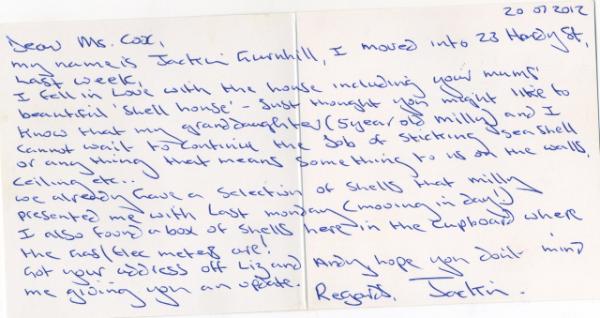 20 07 2012
Dear Ms. Cox,
my name is Jackin Gurnhill, I moved into 23 Hardy St,
last week,
I fell in love with the house including your mums'
beautiful 'shell house' - Just thought you might like to
know that my granddaughter (5 year old milly) and I
cannot wait to continue the Job of sticking sea shell
or anything that means something to us on the walls,
ceiling etc..
we already have a selection of shells that milly
presented me with last monday (moving in day!)
I also found a box of shells here in the cupboard where
the Gas/Elec meters are!
Got your address off Liz and Andy hope you don't mind
me giving you an update. Regards, Jackin.